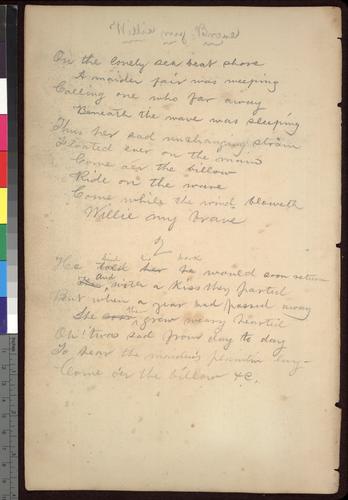 Willie my Brave
On the lonely sea beat shore
A maiden fair was weeping
Calling one who far away
Beneath the wave was sleeping
Thus her sad unchanging strain
Floated ever on the main
Come oer the billow
Ride on the wave
Come while the wind bloweth
Willie my brave
2
He told her he would soon return
And with a kiss they parted
But when a year had passed away
She then grew weary hearted
Oh! twas sad from day to day
To hear the maiden's plaintive lay-
Come o'er the billow &c.